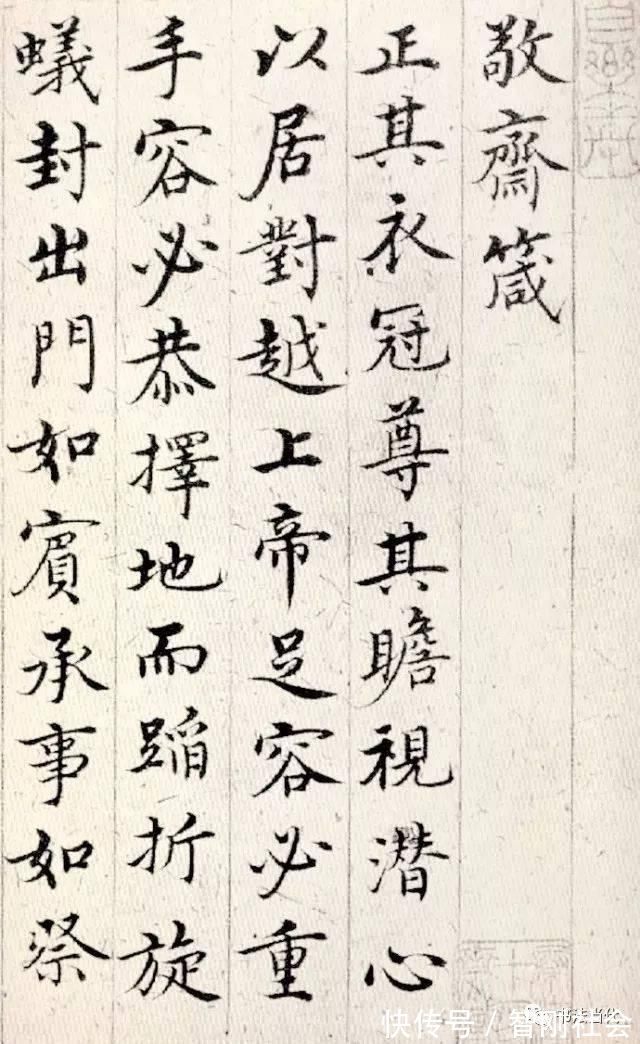 敬齋箴
正其衣冠尊其瞻視潛心
以居對越上帝足容必重
手容必恭擇地而蹈折旋
蟻封出門如賓承事如祭
快传号 / 智刚社会
书法当代